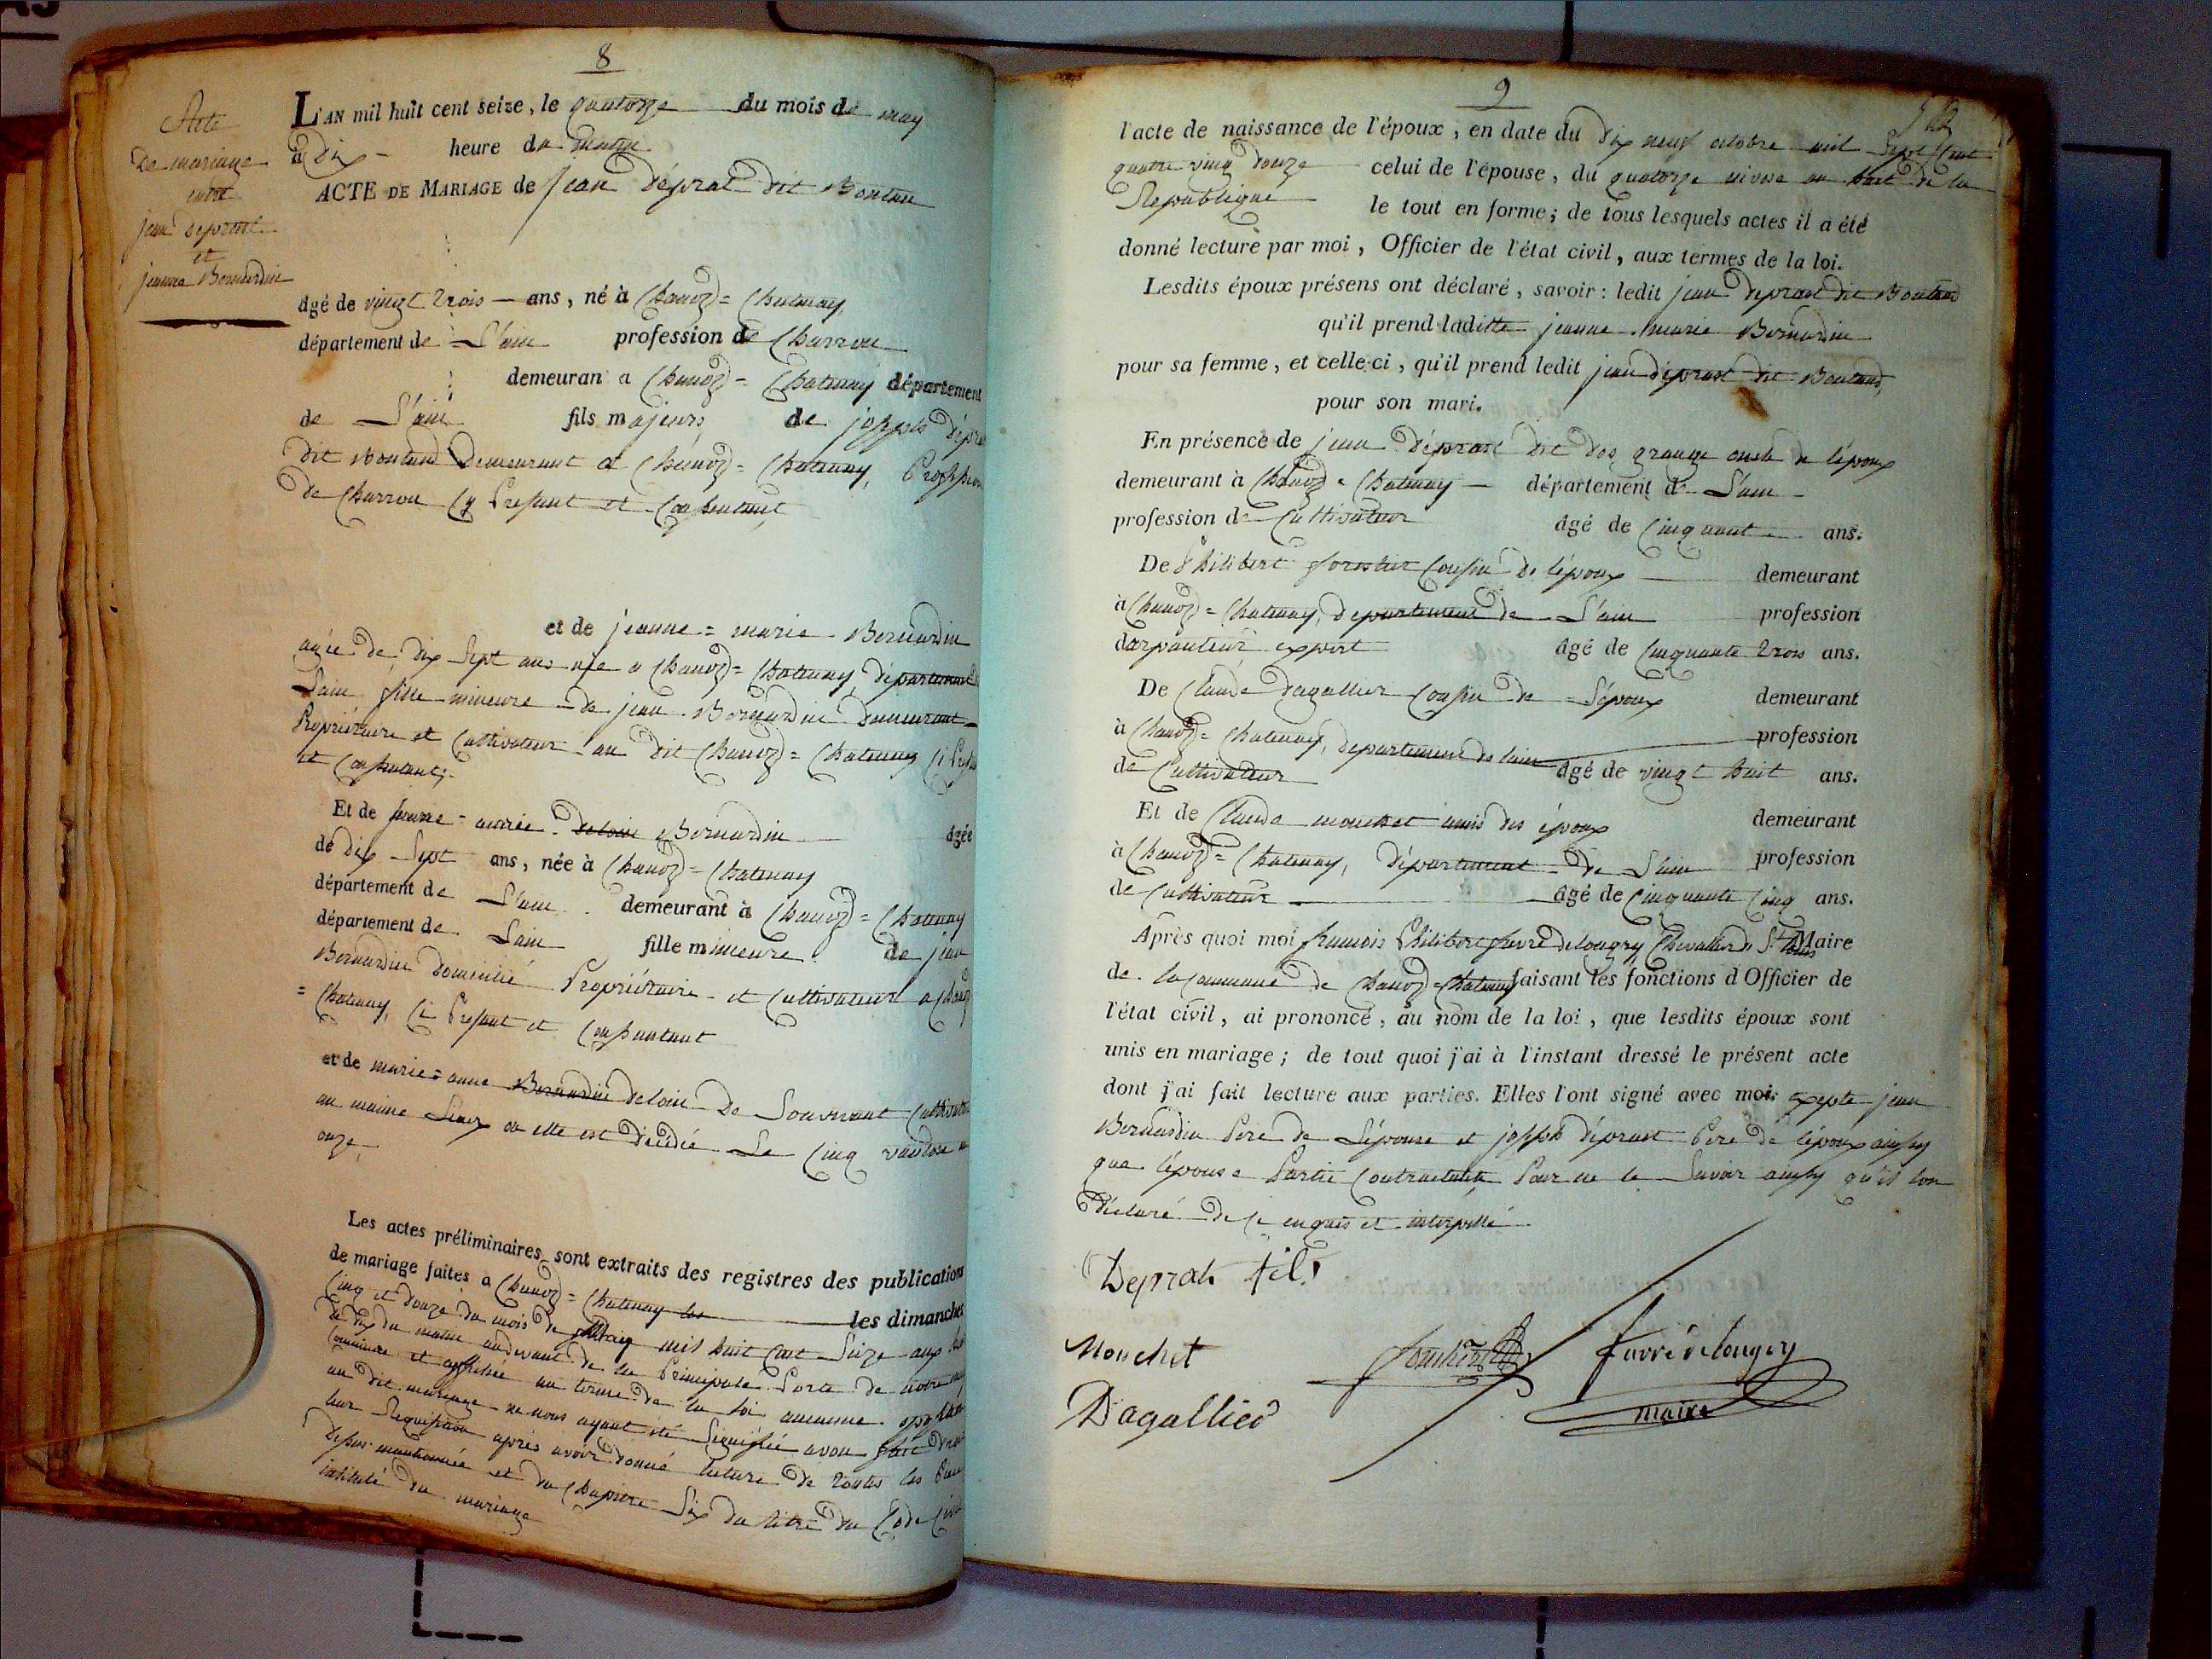 8
Acte
De mariage
entre
jean Deprast
et
jeanne Bernardin
L'AN mil huit cent seize, le quatorze du mois de may
à Dix heure du matin
ACTE DE MARIAGE de Jean Déprat Dit Boutan
âgé de vingt trois ans, né à Chanoz = Chatenay,
département de L'ain profession de Charron
demeuran a Chanoz = Chatenay département
de L'ain fils majeurs de joseph
Dit Boutand Demeurant a Chanoz = Chatenay,
de Charron Cy Present et Consentant
et de jeanne = marie Bernardin
agée de Dix Sept ans née a Chanoz = Chatenay Département
Lain fille mineure de jean Bernardin Demeurant
Propriétaire et Cultivateur au Dit Chanoz = Chatenay Ci
et Consentant,
Et de jeanne = marie Deloin Bernardin agée
de dix Sept ans, née à Chanoz = Chatenay
département de L'ain demeurant à Chanoz = Chatenay
département de Lain fille mineure de jean
Bernardin Domicilié Propriétaire et Cultivateur a
= Chatenay, Ci Present et Consentant
et de marie = anne Bernardin Deloin De Souvivant
au maime Lieux ou elle est Décédée Le Cinq
onze,
Les actes préliminaires sont extraits des registres des publications
de mariage faites a Chanoz = Chatenay les les dimanches
Cinq et Douze du mois de May mil huit Cent Seize aux
de Dix du matin audevant de la Principale Porte de notre
Commune et affichée au terme de la loi aucunne
au Dit mariage ne nous ayant été Signifiée avon fait Droit
leur Requisition après avoir Donné lecture de toutes les
Depus mantionnée et du Chapitre Six du titre du Code
intitulé Du mariage
9
l'acte de naissance de l'époux, en date du Dix neuf octobre mil Sept Cent
quatre vingt Douze celui de l'épouse, du quatorze nivose an Sept de la
Republique le tout en forme; de tous lesquels actes il a été
donné lecture par moi, Officier de l'état civil, aux termes de la loi.
Lesdits époux présens ont déclaré, savoir: ledit jean deprast dit Boutand
qu'il prend laditte jeanne marie Bernardin
pour sa femme, et celle-ci, qu'il prend ledit jean déprast dit Boutand,
pour son mari.
En présence de jean Déprast Dit Des grange oncle de lépoux
demeurant à Chanoz = Chatenay département de L'ain
profession de Cultivateur âgé de Cinquant ans.
De Philibert forestier Cousin De lépoux demeurant
à Chanoz = Chatenay, Departement de L'ain profession
darpanteur expert âgé de Cinquante trois ans.
De Claude Dagallier Cousin de Lépoux demeurant
à Chanoz = Chatenay, departement de lain profession
de Cultivateur âgé de vingt huit ans.
Et de Claude mouchet amis des époux demeurant
à Chanoz = Chatenay, Département De Lain profession
de Cultivateur âgé de Cinquante Cinq ans.
Après quoi moi francois Philibert favre Delongry Chevalier de St Louis Maire
de la Commune De Chanoz = Chatenay faisant les fonctions d'Officier de
l'état civil, ai prononcé, au nom de la loi, que lesdits époux sont
unis en mariage; de tout quoi j'ai à l'instant dressé le présent acte
dont j'ai fait lecture aux parties. Elles l'ont signé avec moi exepté jean
Bernardin Pere de Lépouse et joseph déprast Pere de lépoux ainsy
que lépouse Partie Contractante Pour ne le Savoir ainsy qu'il lon
Déclaré De Ce enquis et interpellé
Deprat fils
Mouchet
favre delongry
Dagallier
maire